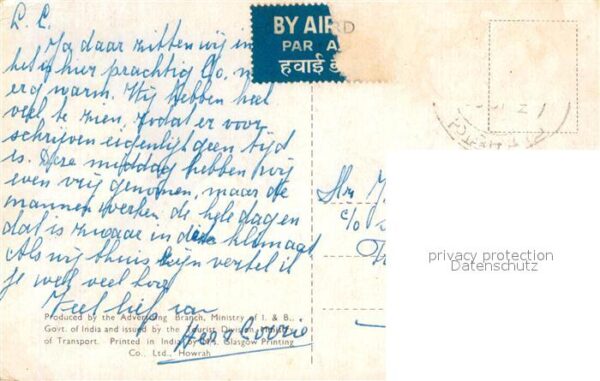 L. L.
Ja daar zitten wij in
het is hier prachtig Co, m
erg warm. Wij hebben heel
veel te zien, zodat er voor
schrijven eigenlijk geen tijd
is. Deze middag hebben wij
even vrij genomen, maar de
mannen werken de hele dag en
dat is zwaar in deze klimaat
Als wij thuis zijn vertel ik
je wel veel hoor
Veel liefs van
BY AIR
PAR A
हवाई
c/o
privacy protection
Datenschutz
Produced by the Advertising Branch, Ministry of I. & B.,
Govt. of India and issued by the Tourist Division, Ministry
of Transport. Printed in India by M/s. Glasgow Printing
Co., Ltd., Howrah